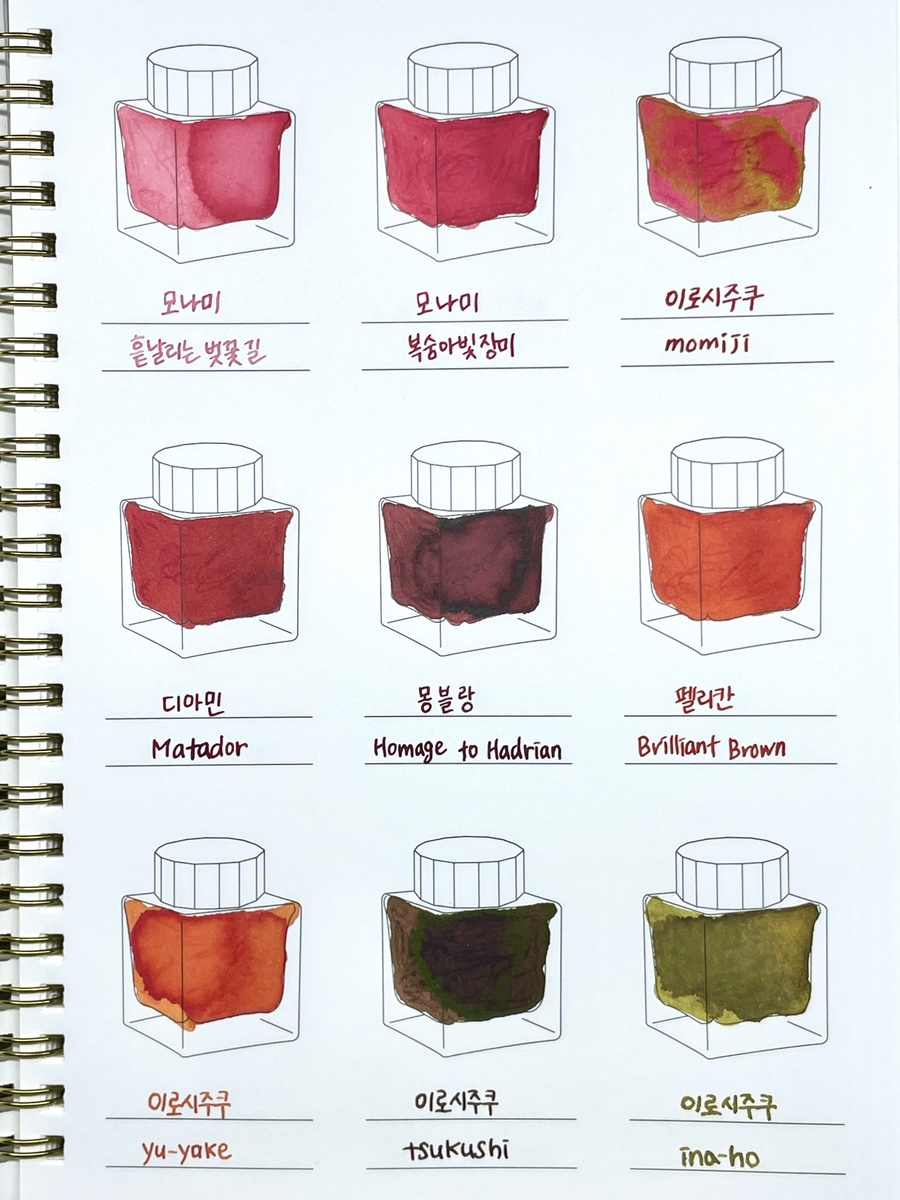 모나미
흩날리는 벚꽃길
모나미
복숭아빛장미
이로시주쿠
momiji
디아민
Matador
몽블랑
Homage to Hadrian
펠리칸
Brilliant Brown
이로시주쿠
yu-yake
이로시주쿠
tsukushi
이로시주쿠
ina-ho